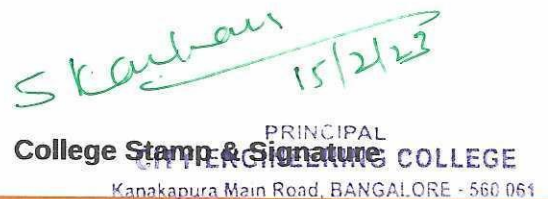 15/2/23
PRINCIPAL
College Stamp & Signature
CITY ENGINEERING COLLEGE
Kanakapura Main Road, BANGALORE - 560 061